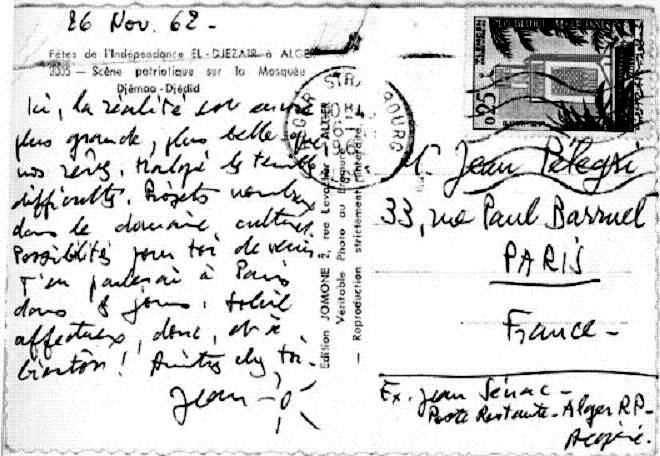 26 Nov. 62 -
Fêtes de l'Indépendance EL-DJEZAIR à ALGER
2005 — Scène patriotique sur la Mosquée
Djémaa-Djédid
Ici, la réalité est encore
plus grande, plus belle que
nos rêves. Malgré les terribles
difficultés. Projets nombreux
dans le domaine culturel.
Possibilités pour toi de venir.
T'en parlerai à Paris
dans 8 jours. Soleil
affectueux, donc, et à
bientôt! Amitiés chez toi.
Jean -
Edition JOMONE 2, rue Lavoisier ALGER
Véritable Photo au Bromure
— Reproduction strictement interdite
ALGER STRASBOURG
196
REPUBLIQUE ALGERIENNE
TLEMCEN
0,25
M. Jean Pélegri
33, rue Paul Barruel
PARIS
France -
Ex. Jean Sénac -
Poste Restante - Alger RP -
Algérie.